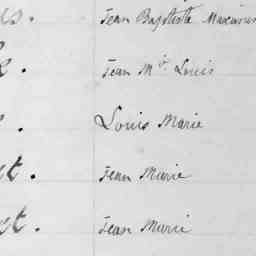 Jean Baptiste Maximin
Jean Mie Louis
Louis Marie
et. Jean Marie
et. Jean Marie